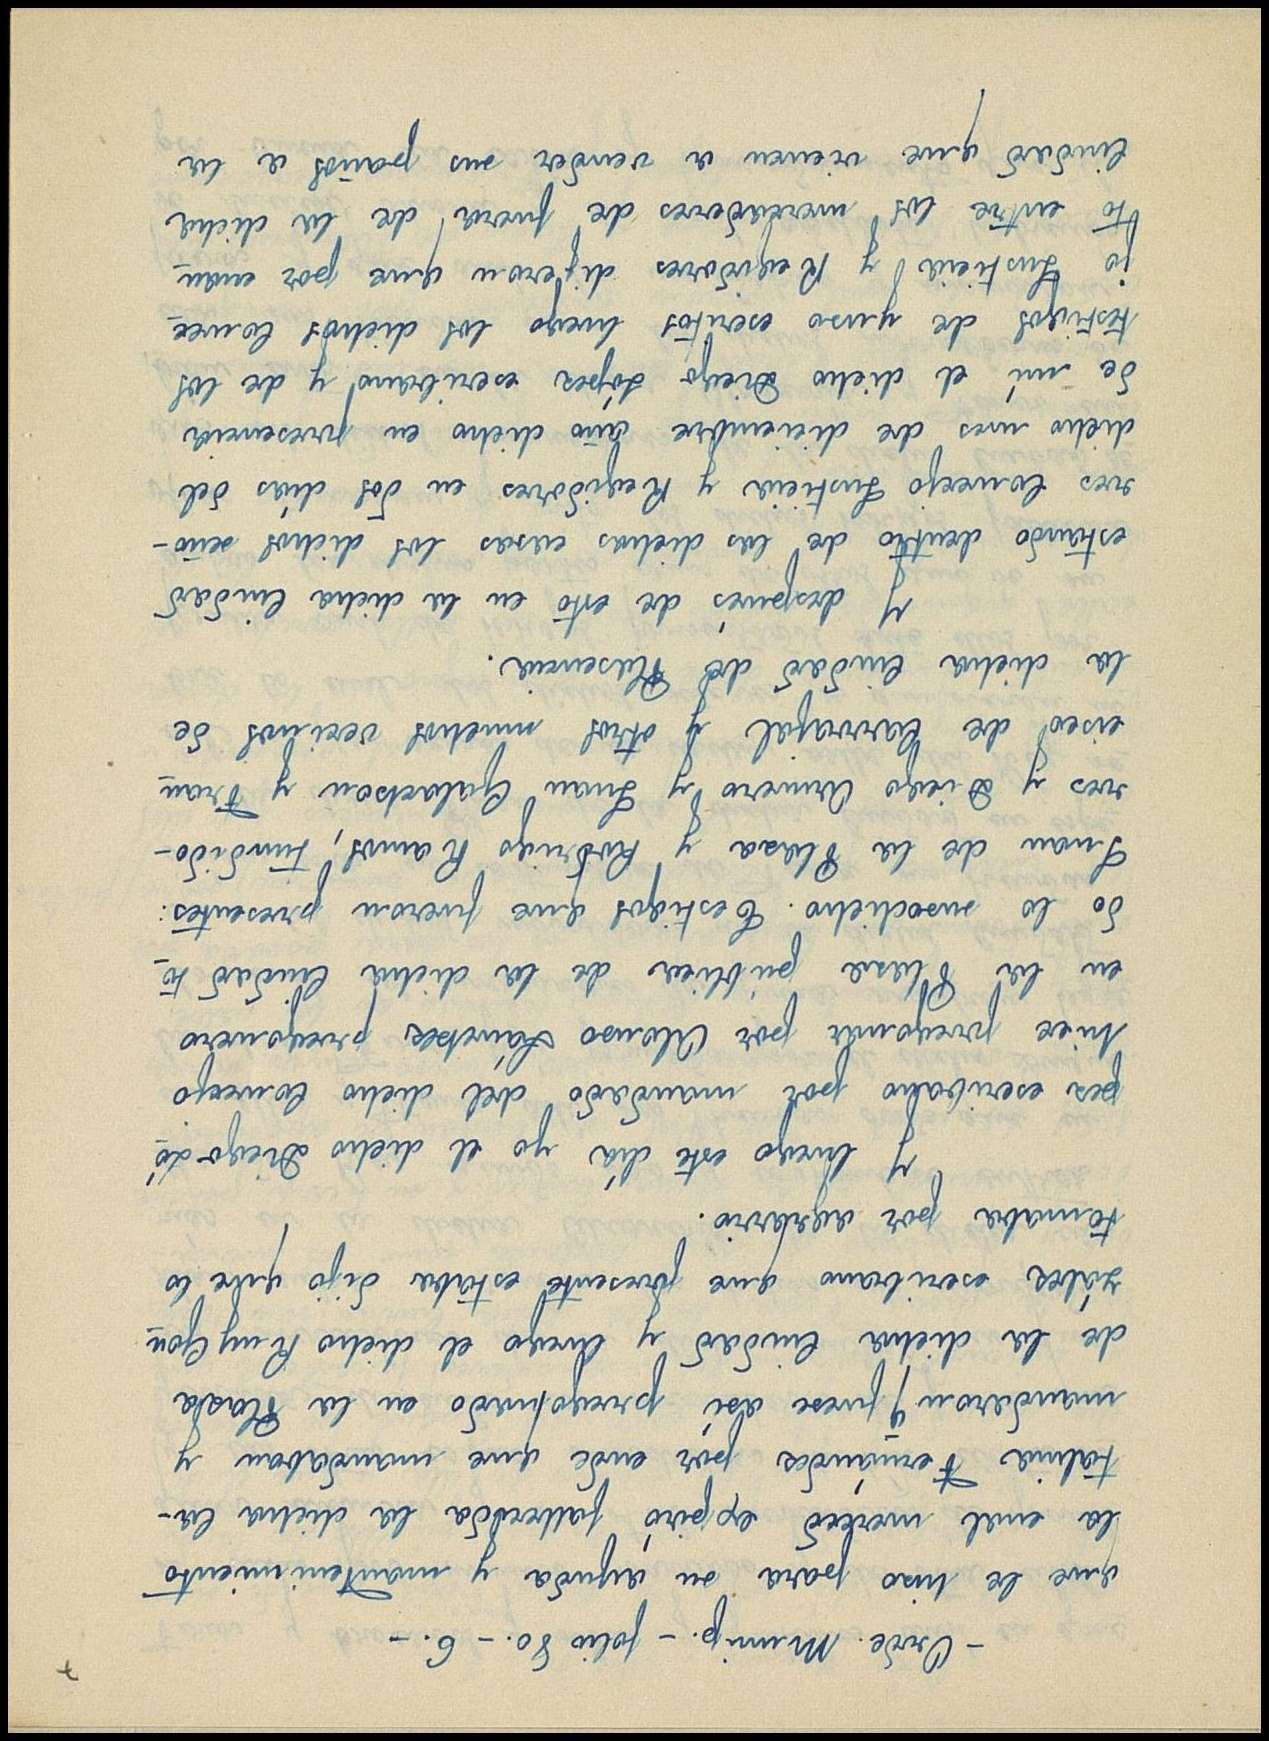 7
- Orde. Municip. - folio 80. - 6. -
que le hiso para su ayuda y mantenimiento
la cual merced expiró fallecida la dicha Ca-
talina Fernándes por ende que mandaban y
mandaron fuese así pregonado en la Plasa
de la dicha Ciudad y luego el dicho Ruy Gon
záles escribano que presente estaba dijo que lo
tomaba por agravio.
Y luego este día yo el dicho Diego Ló
pes escribano por mandado del dicho Concejo
hice pregonar por Alonso Sánches pregonero
en la Plasa pública de la dicha Ciudad to
do lo susodicho. Testigos que fueron presentes:
Juan de la Plasa y Rodrigo Ramos, tundido-
res y Diego Armero y Juan Galactson y Fran
cisco de Carvajal y otros muchos vecinos de
la dicha Ciudad de Plasencia.
Y después de esto en la dicha Ciudad
estando dentro de las dichas casas los dichos seño-
res Concejo Justicia y Regidores en dos días del
dicho mes de diciembre año dicho en presencia
de mí el dicho Diego Lópes escribano y de los
testigos de yuso escritos luego los dichos Conce
jo Justicia y Regidores dijeron que por cuan
to entre los mercadores de fuera de la dicha
Ciudad que vienen a vender sus paños a la